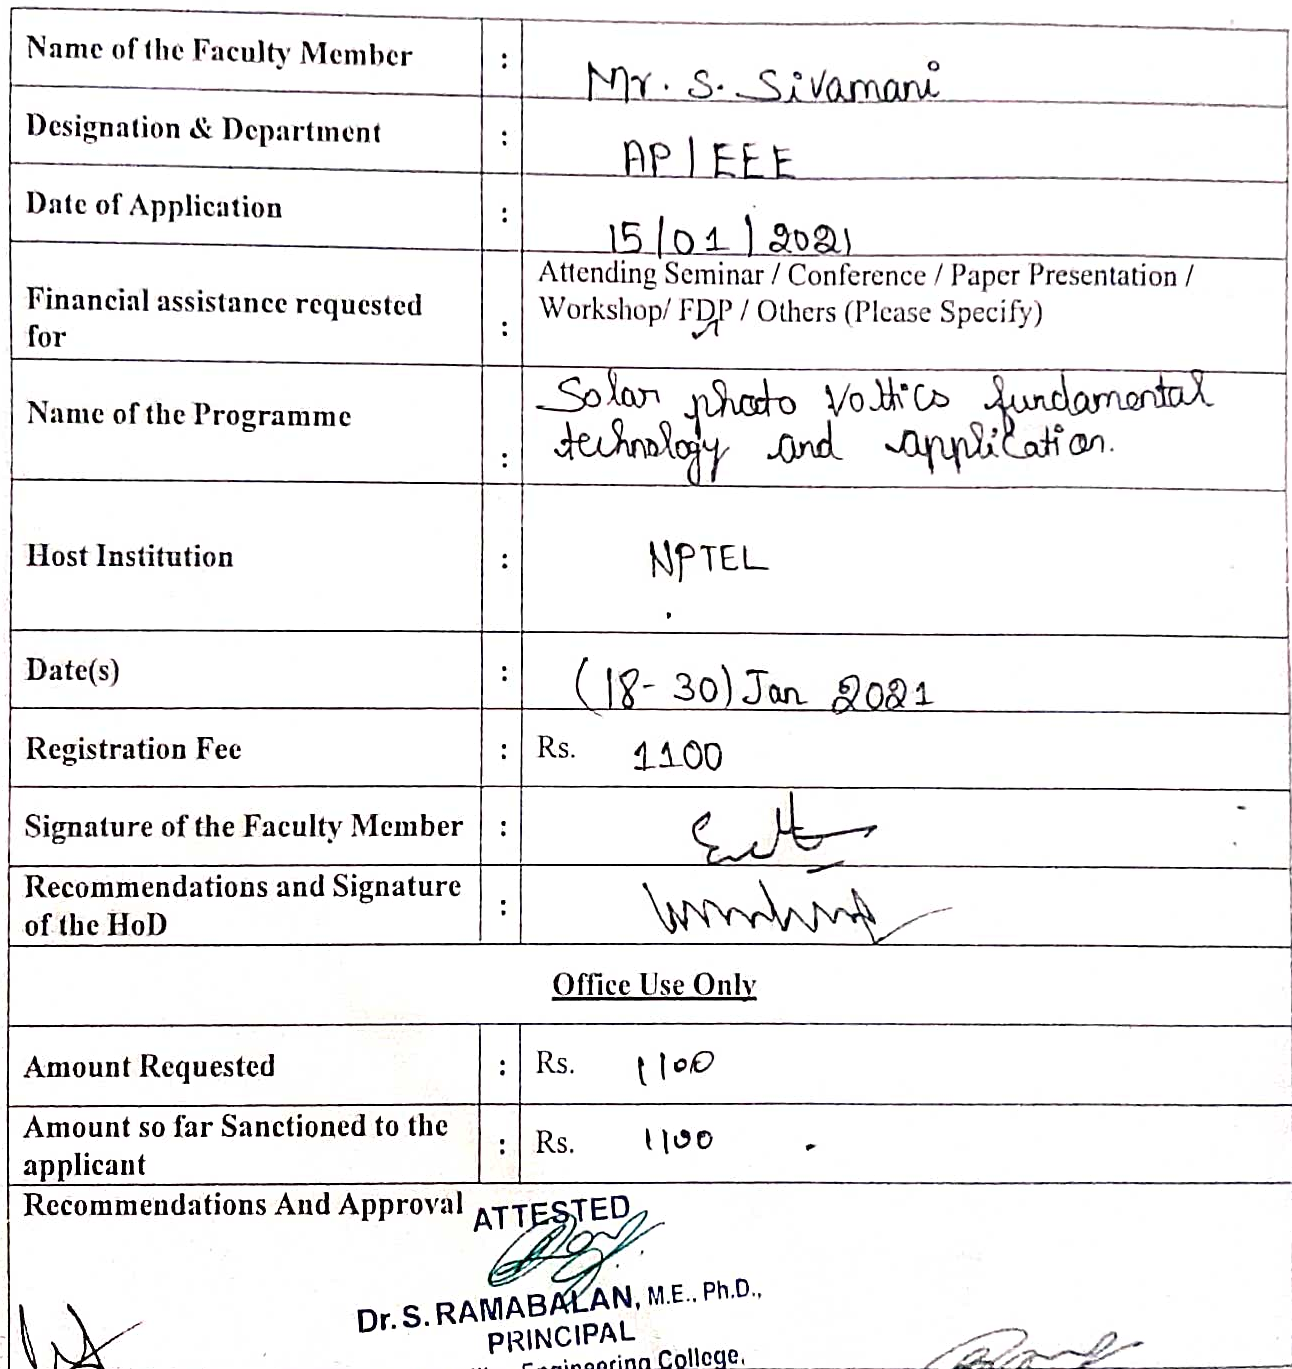 Name of the Faculty Member : Mr. S. Sivamani
Designation & Department : AP | EEE
Date of Application : 15/01/2021
Attending Seminar / Conference / Paper Presentation /
Financial assistance requested for : Workshop/ FDP / Others (Please Specify)
Name of the Programme : Solar photo Voltics fundamental
technology and application.
Host Institution : NPTEL
Date(s) : (18-30) Jan 2021
Registration Fee : Rs. 1100
Signature of the Faculty Member :
Recommendations and Signature
of the HoD :
Office Use Only
Amount Requested : Rs. 1100
Amount so far Sanctioned to the
applicant : Rs. 1100
Recommendations And Approval
ATTESTED
Dr. S. RAMABALAN, M.E., Ph.D.,
PRINCIPAL
Engineering College,